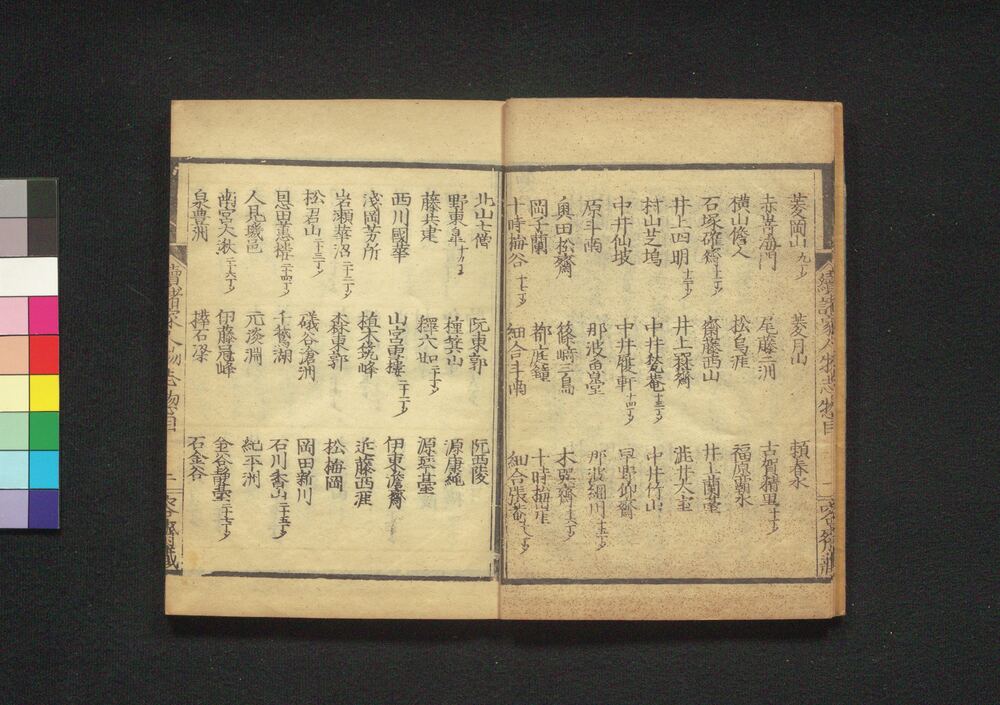 菱岡山九丁
菱月山
頼春水
赤嵜海門
尾藤二洲
古賀精里十丁
横山脩人
松烏涯
福原潮水
石塚確齋十二丁
齋藤西山
井上蘭臺
井上四明
井上毅齋
澁井太室
村山芝塢
中井甃菴十三丁
中井竹山
中井仙坡
中井履軒十四丁
早野仰齋
原斗南
那波魯堂
那波細川十五丁
奥田松齋
篠﨑三島
木巽齋十六丁
岡子蘭
都庭鐘
十時梅厓
十時梅谷十七丁
細合斗南
細合張菴十八丁
北山七僧
阮東郭
阮西陵
野東皐十九丁
種箕山
源康純
藤共建
釋六如二十丁
源琴臺
西川國華
山宮雪樓二十一丁
伊東澹齋
淺岡芳所
植木筑峰
近藤西涯
岩瀬華沼二十二丁
森東郭
松梅岡
松君山二十三丁
礒谷滄洲
岡田新川
恩田蕙樓二十四丁
千鵞湖
石川香山二十五丁
人見璣邑
元淡淵
紀平洲
南宮大湫二十六丁
伊藤冠峰
金谷靜臺二十七丁
泉豊洲
樺石梁
石金谷
續諸家人物志惣目
續諸家人物志惣目